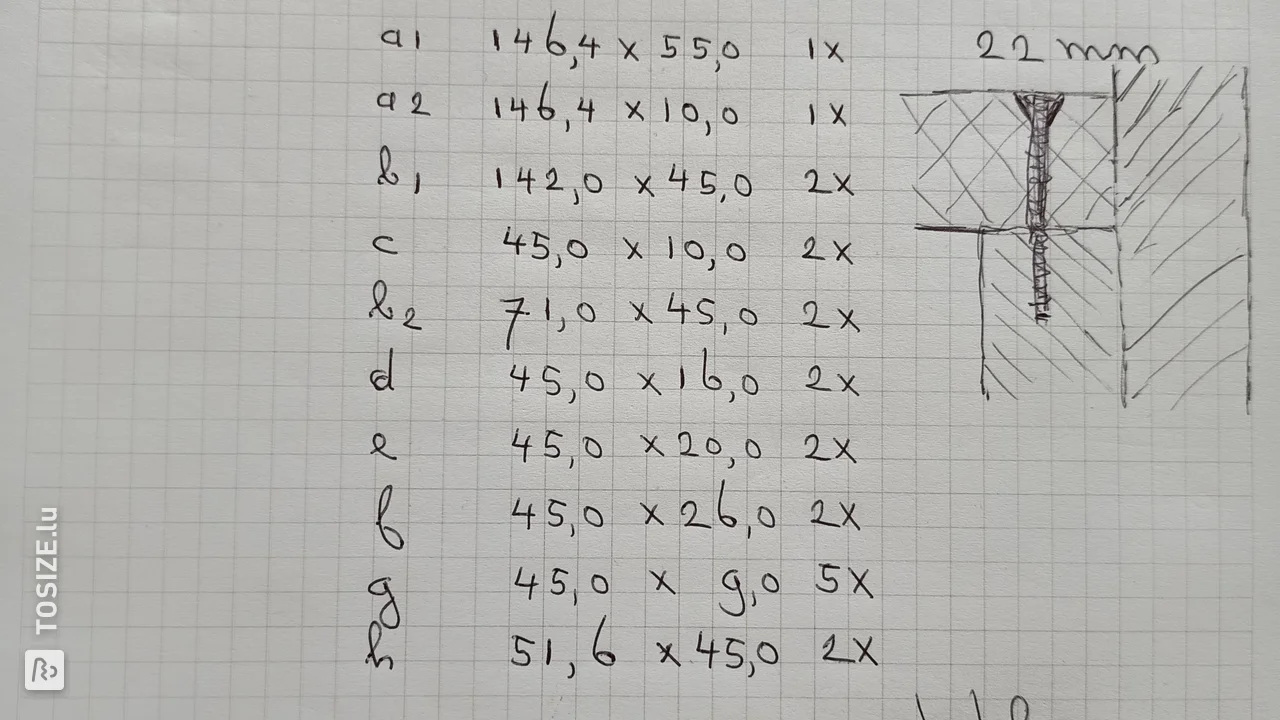 a1 146,4 x 55,0 1x
22 mm
a2 146,4 x 10,0 1x
b1 142,0 x 45,0 2x
c 45,0 x 10,0 2x
b2 71,0 x 45,0 2x
d 45,0 x 16,0 2x
e 45,0 x 20,0 2x
f 45,0 x 26,0 2x
g 45,0 x 9,0 5x
h 51,6 x 45,0 2x
TOSIZE.lu